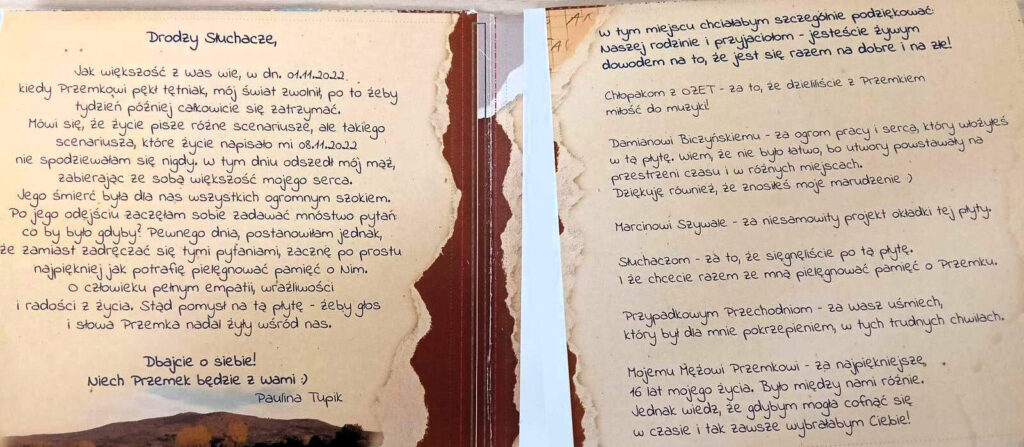 Drodzy Słuchacze,
Jak większość z was wie, w dn. 01.11.2022
kiedy Przemkowi pękł tętniak, mój świat zwolnił, po to żeby
tydzień później całkowicie się zatrzymać.
Mówi się, że życie pisze różne scenariusze, ale takiego
scenariusza, które życie napisało mi 08.11.2022
nie spodziewałam się nigdy. w tym dniu odszedł mój mąż,
zabierając ze sobą większość mojego serca.
Jego śmierć była dla nas wszystkich ogromnym szokiem.
Po jego odejściu zaczęłam sobie zadawać mnóstwo pytań
co by było gdyby? Pewnego dnia, postanowiłam jednak,
że zamiast zadręczać się tymi pytaniami, zacznę po prostu
najpiękniej jak potrafię pielęgnować pamięć o Nim.
o człowieku pełnym empatii, wrażliwości
i radości z życia. Stąd pomysł na tą płytę - żeby głos
i słowa Przemka nadal żyły wśród nas.
Dbajcie o siebie!
Niech Przemek będzie z wami :)
Paulina Tupik
w tym miejscu chciałabym szczególnie podziękować:
Naszej rodzinie i przyjaciołom - jesteście żywym
dowodem na to, że jest się razem na dobre i na złe!
Chłopakom z oZET - za to, że dzieliliście z Przemkiem
miłość do muzyki!
Damianowi Biczyńskiemu - za ogrom pracy i serca, który włożyłeś
w tą płytę. wiem, że nie było łatwo, bo utwory powstawały na
przestrzeni czasu i w różnych miejscach.
Dziękuję również, że znosiłeś moje marudzenie :)
Marcinowi Szywale - za niesamowity projekt okładki tej płyty.
Słuchaczom - za to, że sięgnęliście po tą płytę.
I że chcecie razem ze mną pielęgnować pamięć o Przemku.
Przypadkowym Przechodniom - za wasz uśmiech,
który był dla mnie pokrzepieniem, w tych trudnych chwilach.
Mojemu Mężowi Przemkowi - za najpiękniejsze,
16 lat mojego życia. Było między nami różnie.
Jednak wiedz, że gdybym mogła cofnąć się
w czasie i tak zawsze wybrałabym Ciebie!